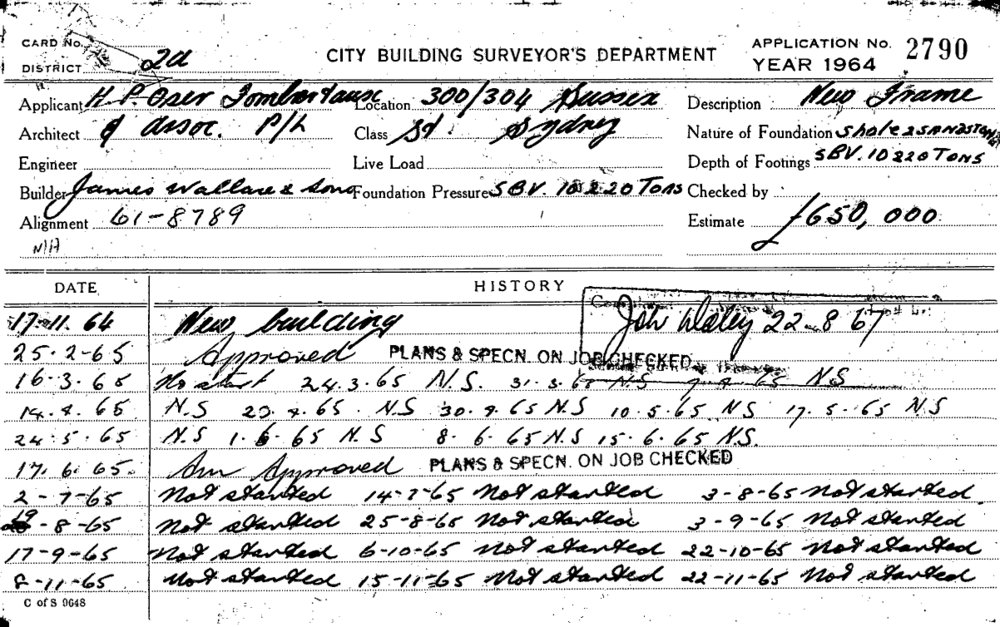 CARD No.
DISTRICT 2a
CITY BUILDING SURVEYOR'S DEPARTMENT
APPLICATION No. 2790
YEAR 1964
Applicant H. P. Oser Fombertaux Location 300/304 Sussex Description New Frame
Architect & Assoc. P/L Class St. Sydney Nature of Foundation Shale & SANDSTONE
Engineer Live Load Depth of Footings SBV. 10 & 20 TONS
Builder James Wallace & Sons Foundation Pressure SBV. 10 & 20 TONS Checked by
Alignment 61-8789 Estimate £650,000
N/A
DATE HISTORY
17-11.64 New building Job 22-8-67
25-2-65 Approved PLANS & SPECN. ON JOB CHECKED
16-3-65 No start 24.3.65 N.S. 31-3-65 N.S 65 N.S
14.4.65 N.S 23.4.65. N.S 30.4.65 N.S 10.5.65 N.S 17.5.65 N.S
24.5.65 N.S 1.6.65 N.S 8.6.65 N.S 15.6.65 N.S.
17.6.65. Am Approved PLANS & SPECN. ON JOB CHECKED
2-7-65 Not started 14-7-65 Not started 3-8-65 Not started.
19-8-65 Not started 25-8-65 Not started 3-9-65 Not started
17-9-65 Not started 6-10-65 Not started 22-10-65 Not started
8-11-65 Not started 15-11-65 Not started 22-11-65 Not started
C of S 9648